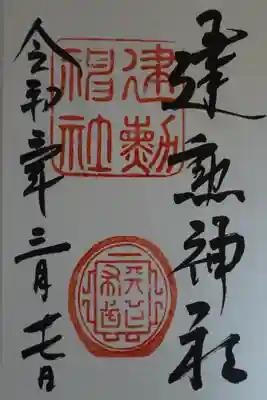 建勲神社
建勳
神社
天下布武
令和年三月十七日